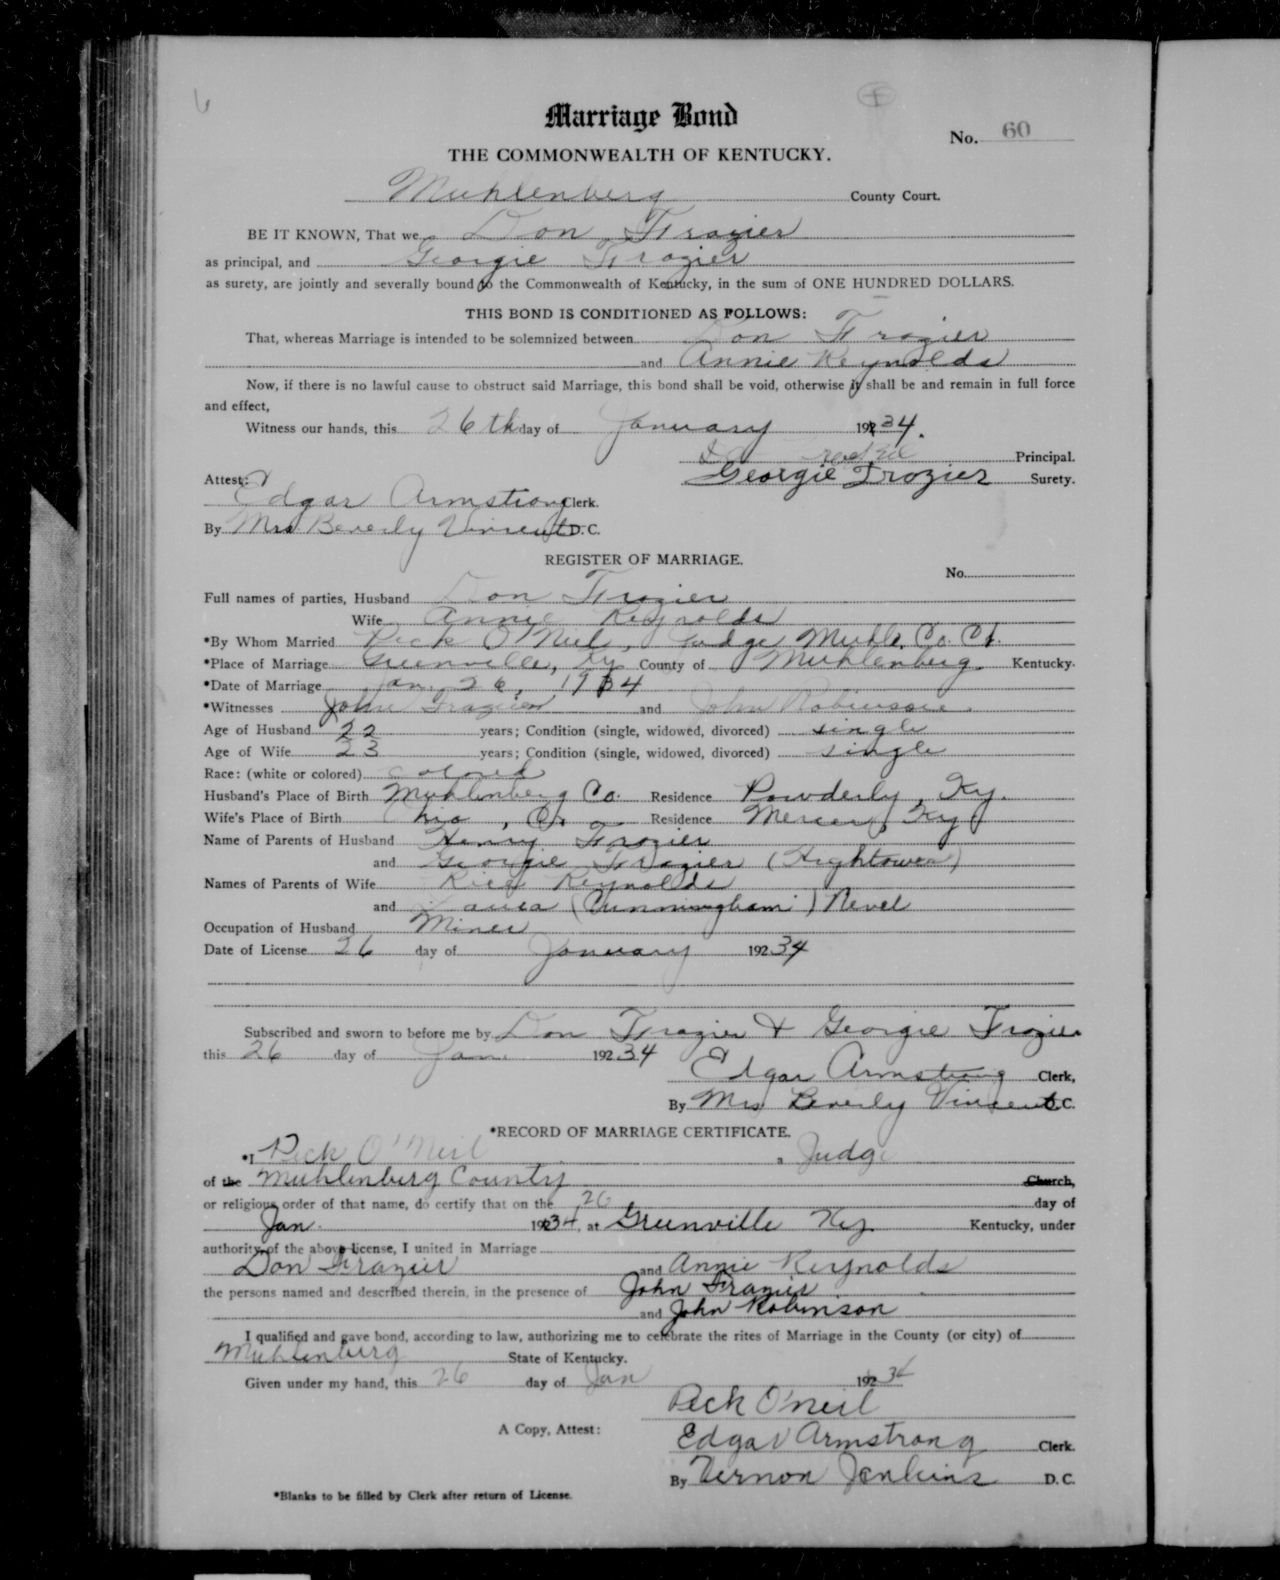 Marriage Bond
No. 60
THE COMMONWEALTH OF KENTUCKY.
Muhlenberg County Court.
BE IT KNOWN, That we Don Frazier
as principal, and Georgie Frazier
as surety, are jointly and severally bound to the Commonwealth of Kentucky, in the sum of ONE HUNDRED DOLLARS.
THIS BOND IS CONDITIONED AS FOLLOWS:
That, whereas Marriage is intended to be solemnized between Don Frazier
and Annie Reynolds
Now, if there is no lawful cause to obstruct said Marriage, this bond shall be void, otherwise it shall be and remain in full force
and effect,
Witness our hands, this 26th day of January 1934.
Principal.
Georgie Frozier Surety.
Attest:
Edgar Armstrong Clerk.
By Mrs Beverly Vincent D.C.
REGISTER OF MARRIAGE.
No.
Full names of parties, Husband Don Frozier
Wife Annie Reynolds
*By Whom Married Peck O'Neil, Judge Muhl. Co. Ct.
*Place of Marriage Greenville, Ky County of Muhlenberg Kentucky.
*Date of Marriage Jan. 26, 1934
*Witnesses John Frazier and John Robinson
Age of Husband 22 years; Condition (single, widowed, divorced) single
Age of Wife 23 years; Condition (single, widowed, divorced) single
Race: (white or colored) colored
Husband's Place of Birth Muhlenberg Co. Residence Powderly, Ky.
Wife's Place of Birth Ohio, Co. Residence Mercer, Ky
Name of Parents of Husband Henry Frozier
and Georgie Frazier (Hightower)
Names of Parents of Wife Reynolds
and (Cunningham) Nevel
Occupation of Husband Miner
Date of License 26 day of January 19234
Subscribed and sworn to before me by Don Frazier & Georgie Frozier
this 26 day of Jan. 19234
Edgar Armstrong Clerk,
By Mrs Beverly Vincent D.C.
*RECORD OF MARRIAGE CERTIFICATE.
*I Peck O'Neil, a Judge
of the Muhlenberg County Church,
or religious order of that name, do certify that on the 26 day of
Jan. 1934, at Greenville Ky. Kentucky, under
authority of the above license, I united in Marriage
Don Frazier and Annie Reynolds
the persons named and described therein, in the presence of John Frazier
and John Robinson
I qualified and gave bond, according to law, authorizing me to celebrate the rites of Marriage in the County (or city) of
Muhlenberg State of Kentucky.
Given under my hand, this 26 day of Jan 19234
Peck O'neil
A Copy, Attest:
Edgar Armstrong Clerk.
By Vernon Jenkins D.C.
*Blanks to be filled by Clerk after return of License.